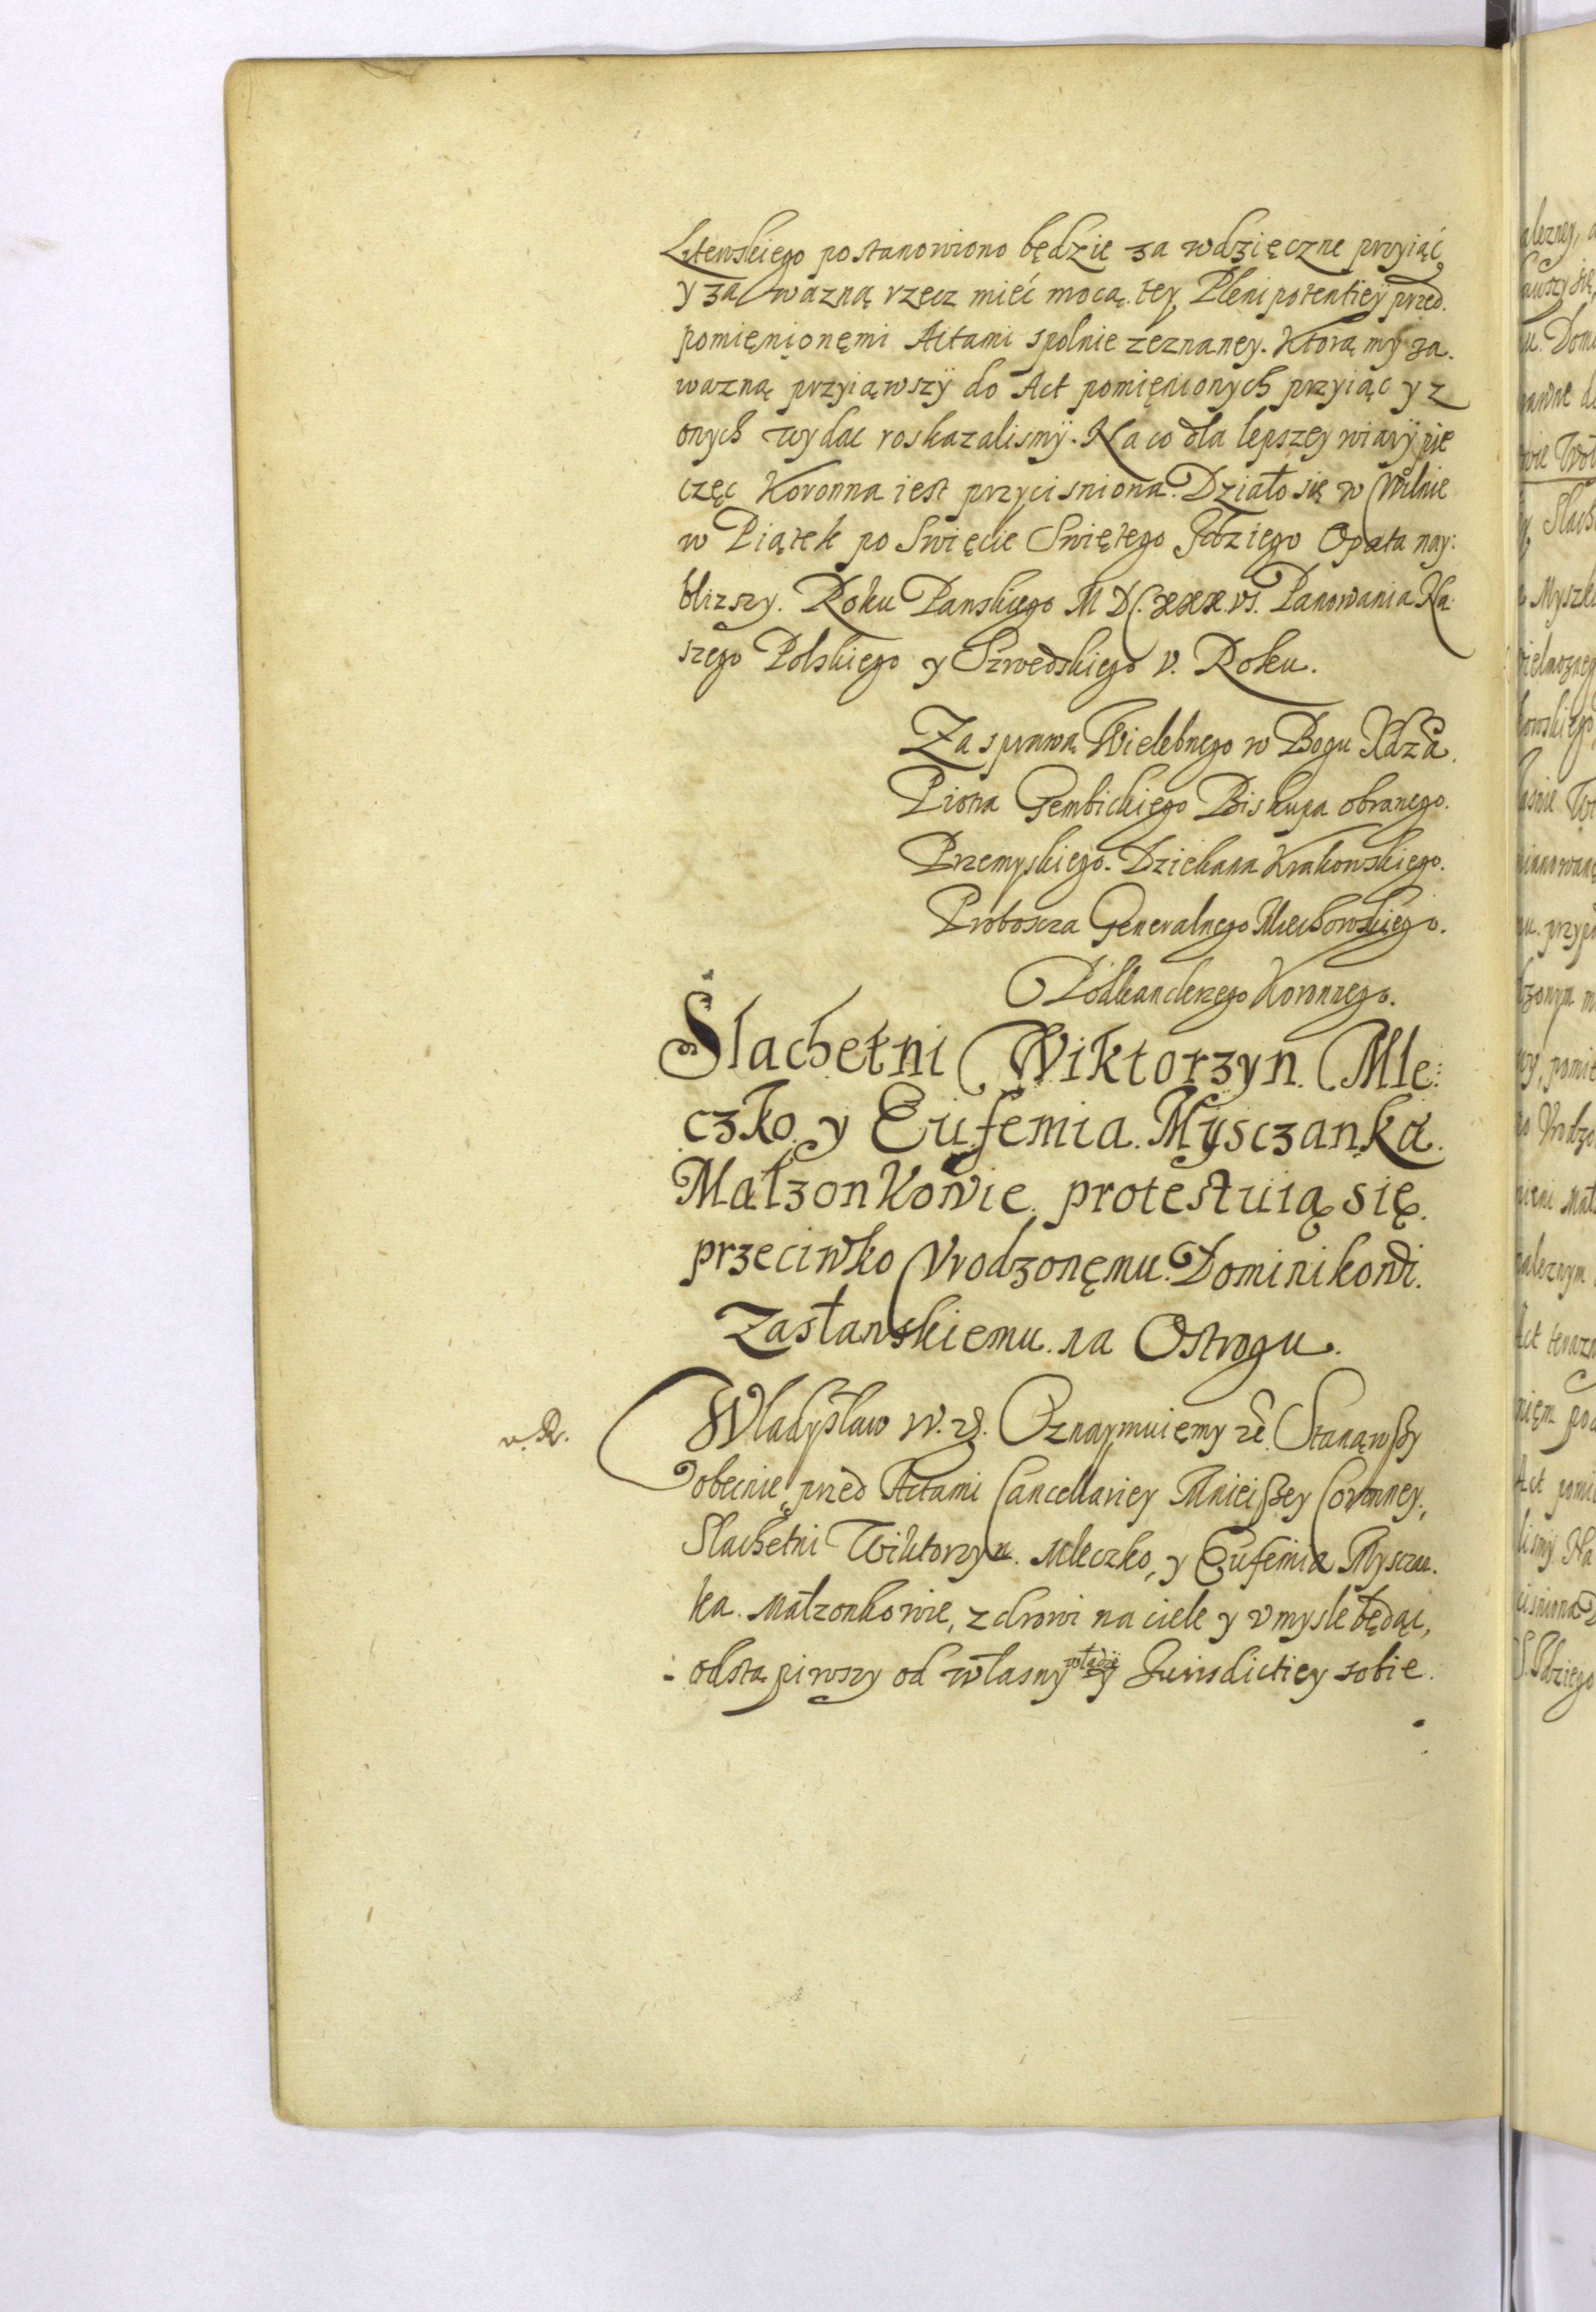 Litewskiego postanowiono będzie za wdzięczne przyiąć
y za wazną rzecz mieć mocą tey Plenipotentiey przed.
pomięnionęmi Actami spolnie zeznaney. Ktorą my za.
wazną przyiąwszÿ do Act pomięnionych przyiąc y z
onych wydac roskazalismÿ. Na co dla lepszey wiarÿ pie
częc Koronna iest przycisniona. Działo się w Wilnie
w Piątek po Swięcie Swiętego Idziego Opata nay:
blizszy. Roku Panskiego M DC. XXX. VI. Panowania Na:
szego Polskiego y Szwedskiego V. Roku.
Za sprawą Wielebnego w Bogu Xdza.
Piotra Gembickiego Biskupa obranego.
Przemyskiego. Dziekana Krakowskiego.
Proboscza Generalnego Miechowskiego.
Podkanclerzego Koronnego.
Slachetni Wiktorzyn. Mle:
czko y Eufemia Mysczanka.
Małzonkowie protestuią się.
przeciwko Vrodzonęmu Dominikowi.
Zasławskiemu na Ostrogu.
Władysław IV. &. Oznaymuięmy &c. Stanąwszy
obecnie przed Actami Cancellariey Mnieiszey Coronney,
Slachetni Wiktorzyn. Mleczko, y Eufemia Mysczan.
ka. Małzonkowie, zdrowi na ciele y vmysle będąc,
odstąpiwszy od własny Jurisdictiey sobie.